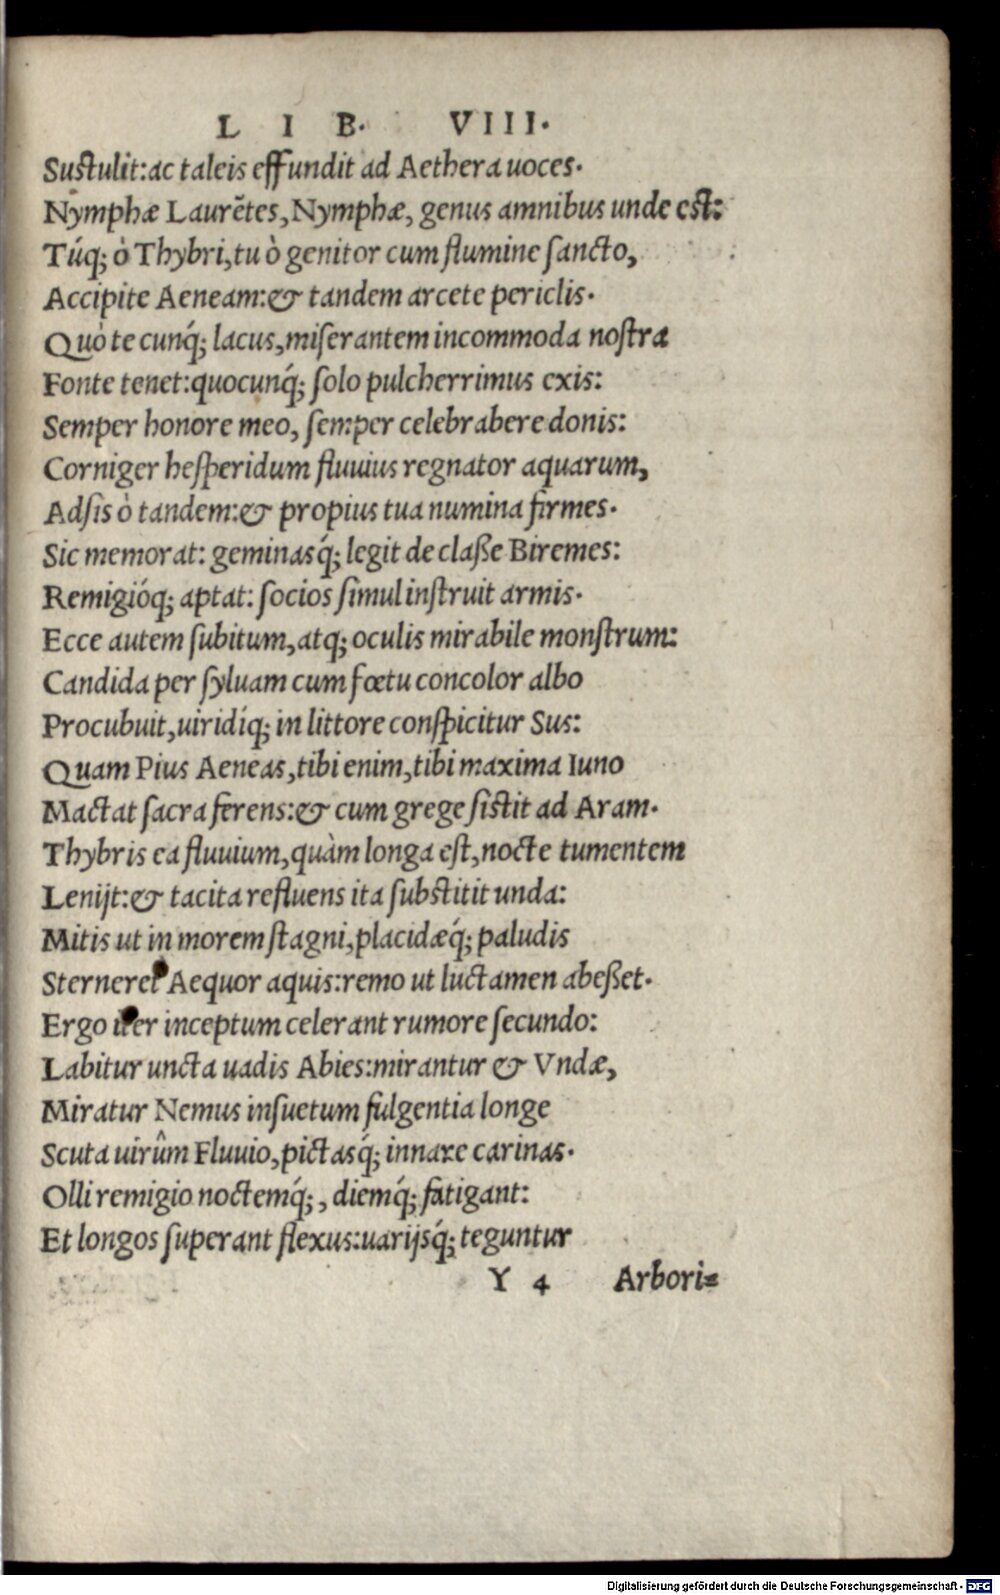 L I B. VIII.
Sustulit: ac taleis effundit ad Aethera uoces.
Nymphæ Laurẽtes, Nymphæ, genus amnibus unde est:
Túq; ò Thybri, tu ò genitor cum flumine sancto,
Accipite Aeneam: & tandem arcete periclis.
Quò te cunq́; lacus, miserantem incommoda nostra
Fonte tenet: quocunq́; solo pulcherrimus exis:
Semper honore meo, semper celebrabere donis:
Corniger hesperidum fluuius regnator aquarum,
Adsis ò tandem: & propius tua numina firmes.
Sic memorat: geminasq́; legit de claße Biremes:
Remigióq; aptat: socios simul instruit armis.
Ecce autem subitum, atq; oculis mirabile monstrum:
Candida per syluam cum fœtu concolor albo
Procubuit, uiridíq; in littore conspicitur Sus:
Quam Pius Aeneas, tibi enim, tibi maxima Iuno
Mactat sacra ferens: & cum grege sistit ad Aram.
Thybris ea fluuium, quàm longa est, nocte tumentem
Lenijt: & tacita refluens ita substitit unda:
Mitis ut in morem stagni, placidæq́; paludis
Sterneret Aequor aquis: remo ut luctamen abeßet.
Ergo iter inceptum celerant rumore secundo:
Labitur uncta uadis Abies: mirantur & Vndæ,
Miratur Nemus insuetum fulgentia longe
Scuta uirûm Fluuio, pictasq́; innare carinas.
Olli remigio noctemq́;, diemq́; fatigant:
Et longos superant flexus: uarijsq́; teguntur
Y 4 Arbori=
Digitalisierung gefördert durch die Deutsche Forschungsgemeinschaft - DFG